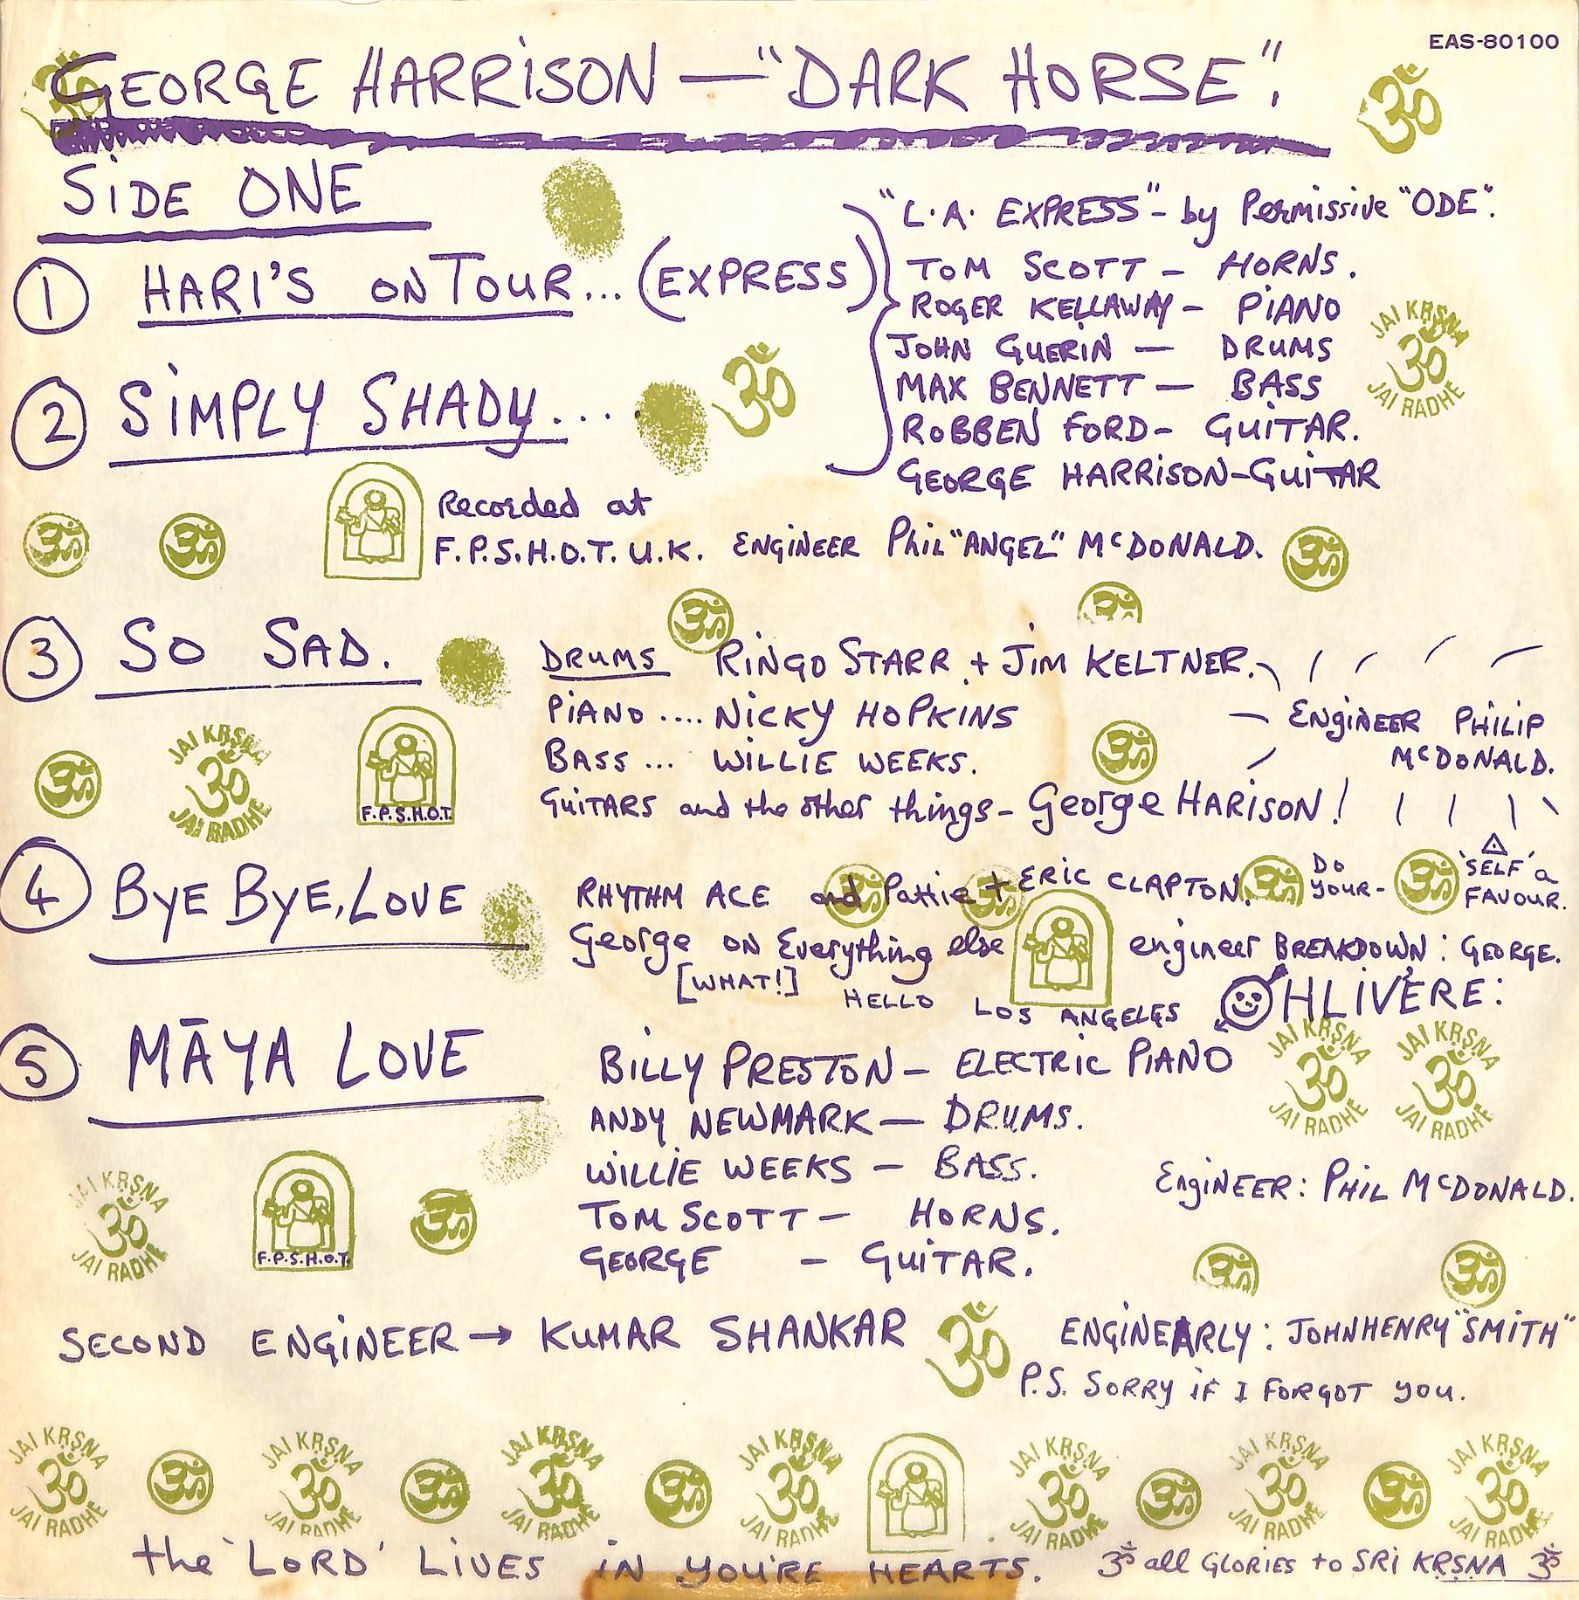 EAS-80100
GEORGE HARRISON — "DARK HORSE".
SIDE ONE
"L.A. EXPRESS" - by Permissive "ODE".
① HARI'S ON TOUR... (EXPRESS)
TOM SCOTT - HORNS.
ROGER KELLAWAY - PIANO
JOHN GUERIN — DRUMS
MAX BENNETT — BASS
ROBBEN FORD - GUITAR.
GEORGE HARRISON - GUITAR
JAI KRṢNA
ॐ
JAI RADHE
② SIMPLY SHADY...
Recorded at
F.P.S.H.O.T. U.K. ENGINEER Phil "ANGEL" McDONALD.
③ SO SAD.
DRUMS RINGO STARR + JIM KELTNER.
PIANO .... NICKY HOPKINS
BASS ... WILLIE WEEKS.
GUITARS and the other things - George HARISON!
ENGINEER PHILIP
McDONALD.
JAI KRṢNA
ॐ
JAI RADHE
F.P.S.H.O.T.
④ BYE BYE, LOVE
RHYTHM ACE and Pattie + ERIC CLAPTON. DO YOUR- 'SELF' a FAVOUR.
George ON Everything else engineer BREAKDOWN: GEORGE.
[WHAT!] HELLO LOS ANGELES OHLIVERE:
⑤ MĀYA LOVE
BILLY PRESTON - ELECTRIC PIANO
ANDY NEWMARK — DRUMS.
WILLIE WEEKS - BASS.
TOM SCOTT - HORNS.
GEORGE - GUITAR.
JAI KRṢNA ॐ JAI RADHE
JAI KRṢNA ॐ JAI RADHE
ENGINEER: PHIL McDONALD.
JAI KRṢNA ॐ JAI RADHE
F.P.S.H.O.T.
SECOND ENGINEER → KUMAR SHANKAR
ENGINEARLY: JOHNHENRY "SMITH"
P.S. SORRY IF I FORGOT YOU.
JAI KRṢNA ॐ JAI RADHE ॐ JAI KRṢNA ॐ JAI RADHE ॐ JAI KRṢNA ॐ JAI RADHE ॐ JAI KRṢNA ॐ JAI RADHE JAI KRṢNA ॐ JAI RADHE ॐ JAI KRṢNA ॐ JAI RADHE ॐ JAI KRṢNA ॐ JAI RADHE
the 'LORD' LIVES IN YOU'RE HEARTS. ॐ all GLORIES to SRI KRṢNA ॐ